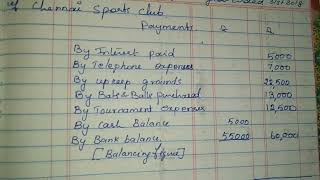 of Chennai Sports Club
Payments
By Interest paid 5000
By Telephone expenses 7,000
By upkeep grounds 22,500
By Bats & Balls purchased 13,000
By Tournament expenses 12,500
By Cash Balance 5000
By Bank balance 55000 60,000
[Balancing figure]